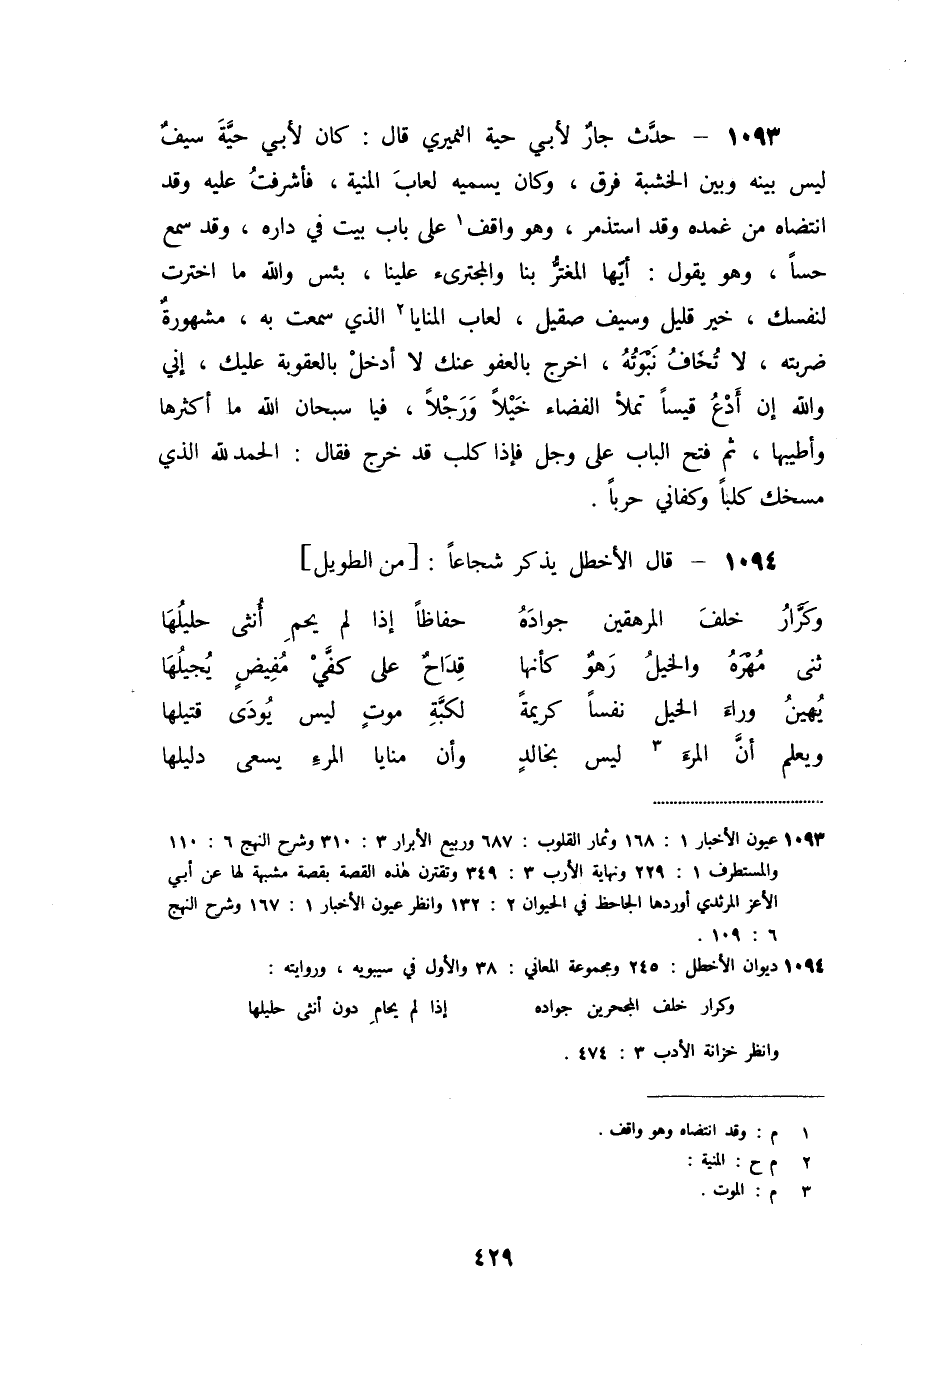 ١٠٩٣ – حدَّث جارٌ لأبي حية النميري قال : كان لأبي حيَّةَ سيفٌ
ليس بينه وبين الخشبة فرق ، وكان يسميه لعابَ المنية ، فأشرفتُ عليه وقد
انتضاه من غمده وقد استذمر ، وهو واقف١ على باب بيت في داره ، وقد سمع
حساً ، وهو يقول : أيّها المغترُّ بنا والمجترىء علينا ، بئس والله ما اخترت
لنفسك ، خير قليل وسيف صقيل ، لعاب المنايا٢ الذي سمعت به ، مشهورةٌ
ضربته ، لا تُخَافُ نَبْوَتُهُ ، اخرج بالعفو عنك لا أدخلْ بالعقوبة عليك ، إني
والله إن أَدْعُ قيساً تملأ الفضاء خَيْلاً وَرَجْلاً ، فيا سبحان الله ما أكثرها
وأطيبها ، ثم فتح الباب على وجل فإذا كلب قد خرج فقال : الحمد لله الذي
مسخك كلباً وكفاني حرباً .
١٠٩٤ – قال الأخطل يذكر شجاعاً : [من الطويل]
وكَرَّارُ خلفَ المرهقين جوادَهُ حفاظاً إذا لم يحمِ أُنثى حليلُهَا
ثنى مُهْرَهُ والخيلُ رَهوٌ كأنها قِدَاحٌ على كفَّيْ مُفِيضٍ يُجيلُهَا
يُهينُ وراءَ الخيل نفساً كريمةً لكبَّةِ موتٍ ليس يُودَى قتيلها
ويعلم أنَّ المرءَ٣ ليس بخالدٍ وأن منايا المرءِ يسعى دليلها
١٠٩٣ عيون الأخبار ١ : ١٦٨ وثمار القلوب : ٦٨٧ وربيع الأبرار ٣ : ٣١٠ وشرح النهج ٦ : ١١٠
والمستطرف ١ : ٢٢٩ ونهاية الأرب ٣ : ٣٤٩ وتقترن هٰذه القصة بقصة مشبهة لها عن أبي
الأعز المرثدي أوردها الجاحظ في الحيوان ٢ : ١٣٢ وانظر عيون الأخبار ١ : ١٦٧ وشرح النهج
٦ : ١٠٩ .
١٠٩٤ ديوان الأخطل : ٢٤٥ ومجموعة المعاني : ٣٨ والأول في سيبويه ، وروايته :
وكرار خلف المجحرين جواده إذا لم يحامِ دون أنثى حليلها
وانظر خزانة الأدب ٣ : ٤٧٤ .
١ م : وقد انتضاه وهو واقف .
٢ م ح : المنية :
٣ م : الموت .
٤٢٩